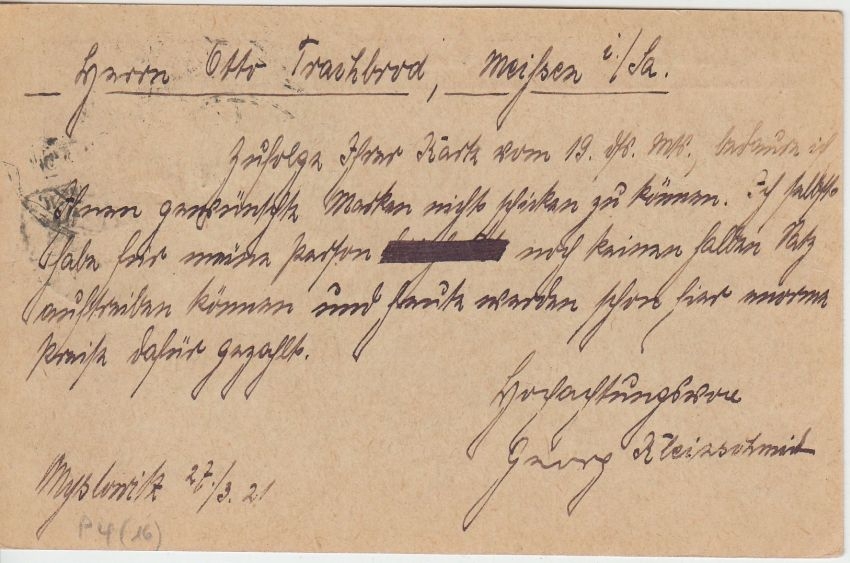 Herrn Otto Trachbrod, Meißen i./Sa.
Zufolge Ihrer Karte vom 19. ds. Mts., bedaure ich
Ihnen gewünschte Marken nicht schicken zu können. Ich selbst
habe für meine Person noch keinen halben Satz
auftreiben können und heute werden schon hier enorme
Preise dafür gezahlt.
Hochachtungsvoll
Georg Kleinschmidt
Myslowitz 27./3. 21
P 4 (16)